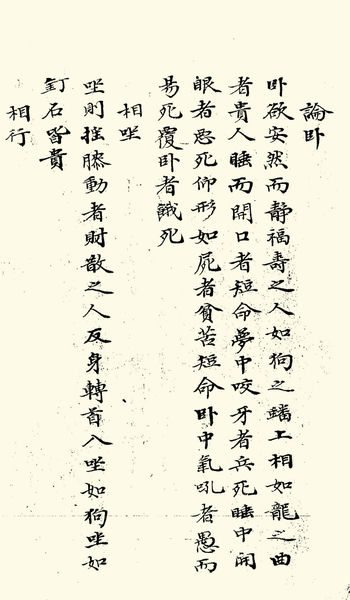 論卧
卧欲安然而靜福壽之人如狗之蟠上相如龍之曲
者貴人睡而開口者短命夢中咬牙者兵死睡中開
眼者惡死仰形如屍者貧苦短命卧中氣吼者愚而
易死覆卧者餓死
相坐
坐則搖膝動者財散之人反身轉首入坐如狗坐如
釘石皆貴
相行